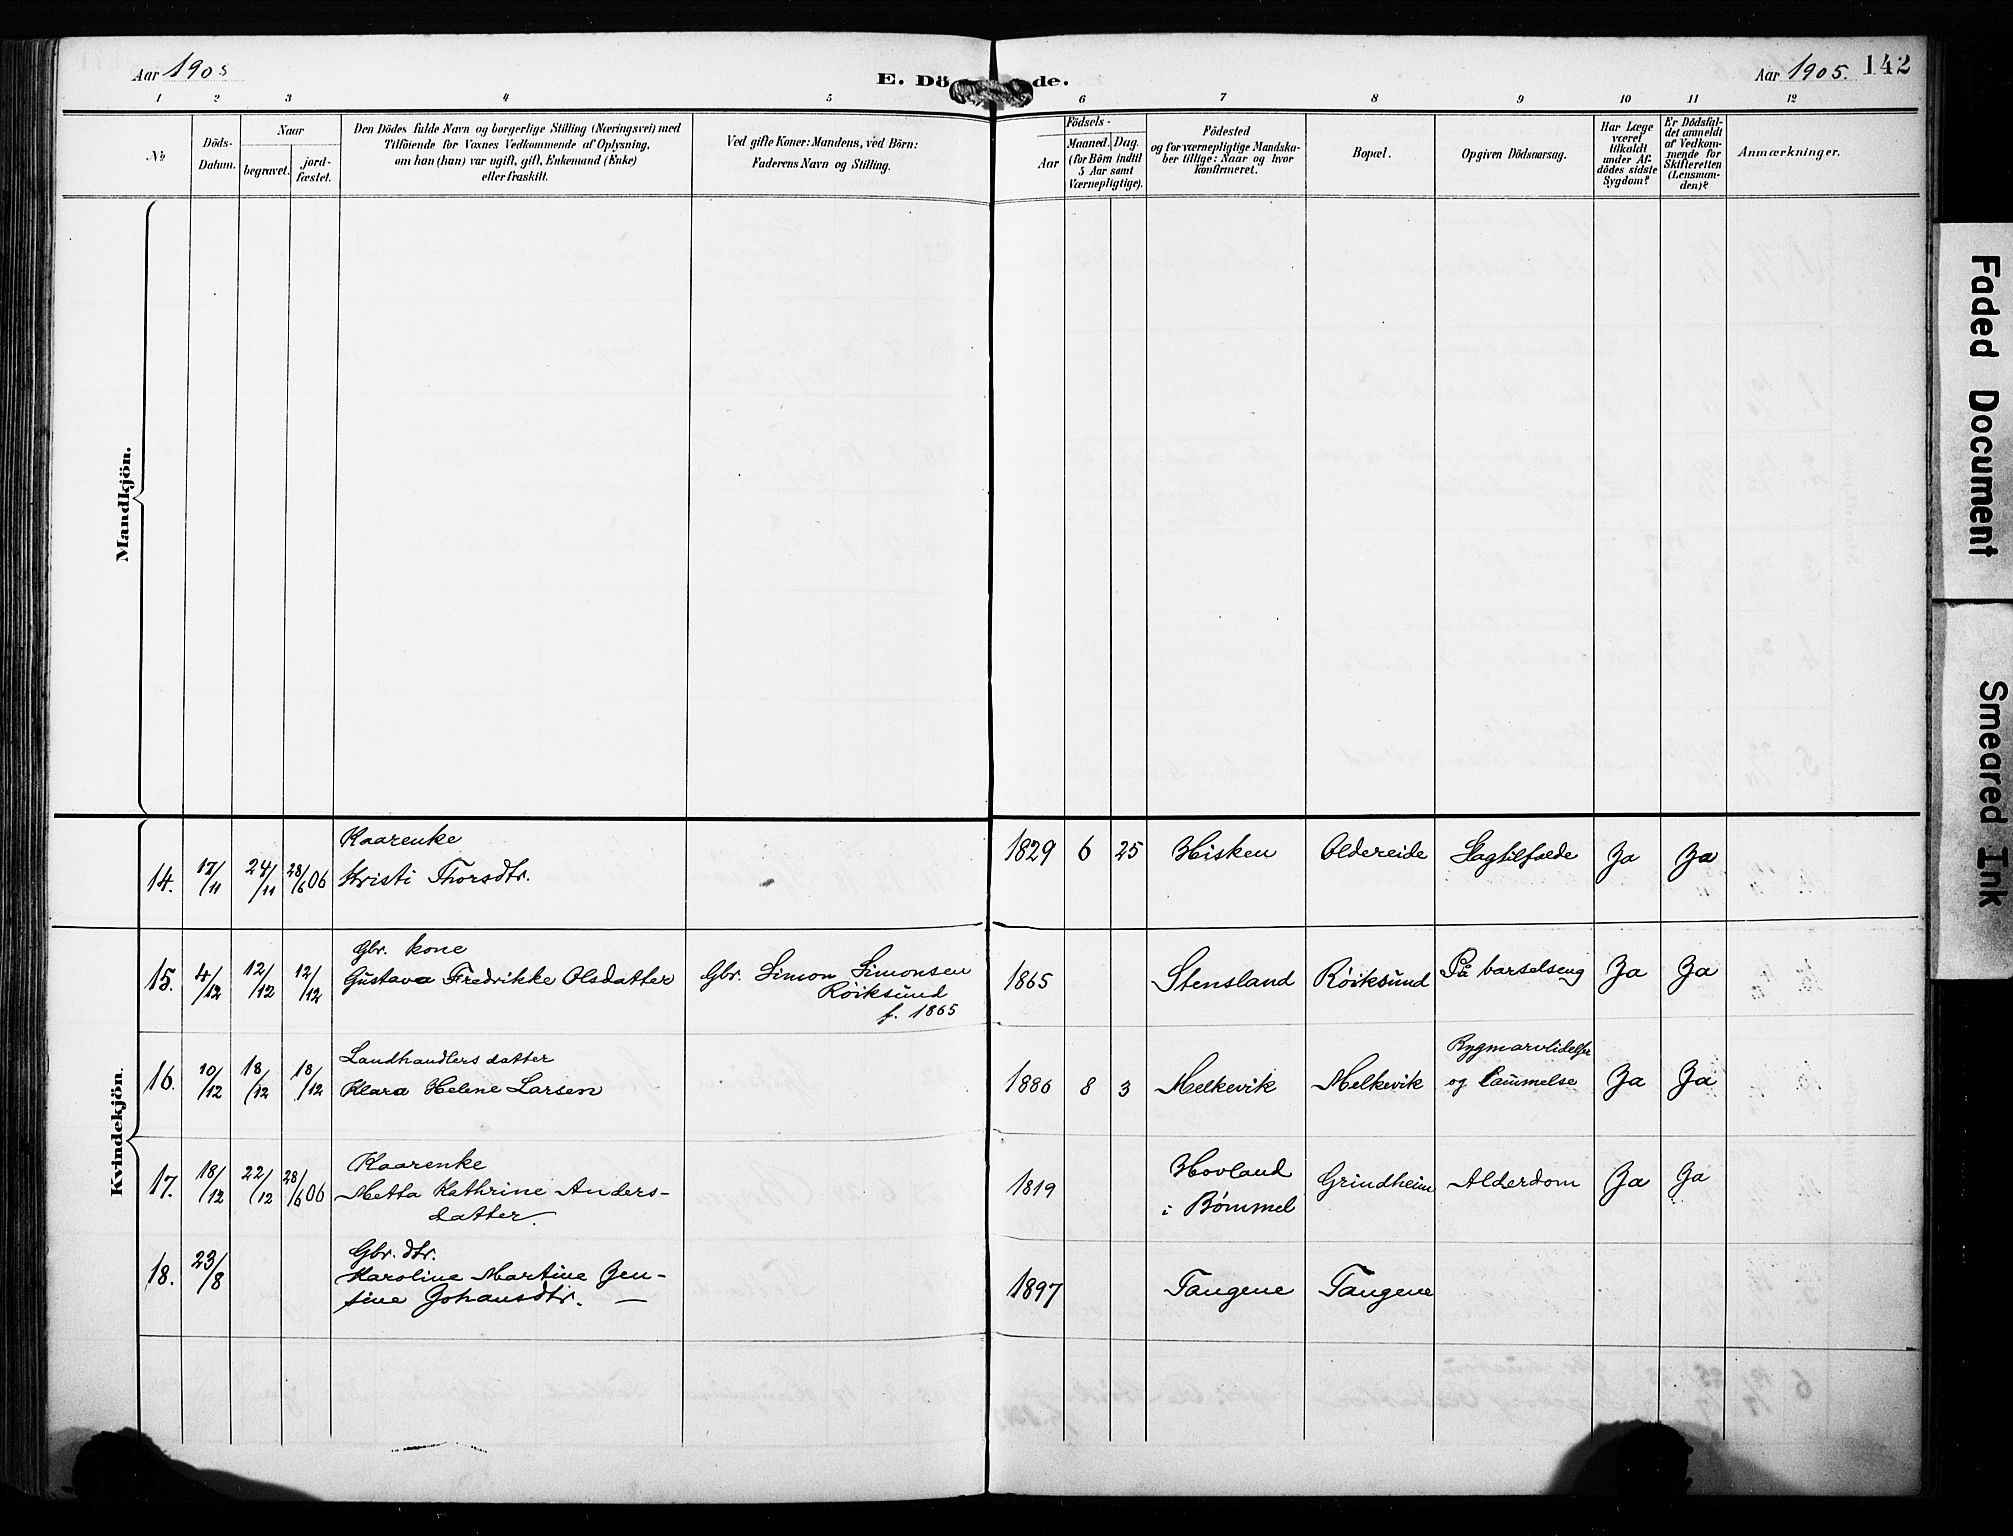 Aar 1905
E. Dö de.
Aar 1905. 142
1 2 3 4 5 6 7 8 9 10 11 12
№
Döds-
Datum.
Naar
begravet.
jord-
fæstet.
Den Dödes fulde Navn og borgerlige Stilling (Næringsvei) med
Tilföiende for Voxnes Vedkommende af Oplysning,
om han (hun) var ugift, gift, Enkemand (Enke)
eller fraskilt.
Ved gifte Koner: Mandens, ved Börn:
Faderens Navn og Stilling.
Födsels-
Aar
Maaned.
Dag.
(for Börn indtil
5 Aar samt
Værnepligtige).
Födested
og for værnepligtige Mandska-
ber tillige: Naar og hvor
konfirmeret.
Bopæl.
Opgiven Dödsaarsag.
Har Læge
været
tilkaldt
under Af-
dödes sidste
Sygdom?
Er Dödsfal-
det anmeldt
af Vedkom-
mende for
Skifteretten
(Lensman-
den)?
Anmærkninger.
Mandkjön.
Kvindekjön.
Kaarenke
14. 17/11 24/11 28/6 06 Kristi Thorsdtr. 1829 6 25 Hisken Oldereide Slagtilfælde Ja Ja
Gbr. kone
15. 4/12 12/12 12/12 Gustava Fredrikke Olsdatter Gbr. Simon Simonsen
Røiksund
f. 1865
1865 Stensland Røiksund På barselseng Ja Ja
Landhandlers datter
16. 10/12 18/12 18/12 Klara Helene Larsen 1886 8 3 Melkevik Melkevik Rygmarvlidelse
og Lammelse Ja Ja
Kaarenke
17. 18/12 22/12 28/6 06 Metta Kathrine Anders-
datter.
1819 Hovland
i Bømmel Grindheim Alderdom Ja Ja
Gbr. dtr.
18. 23/8 Karoline Martine Jen-
sine Johansdtr. —
1897 Tangene Tangene
Faded Document
Smeared Ink